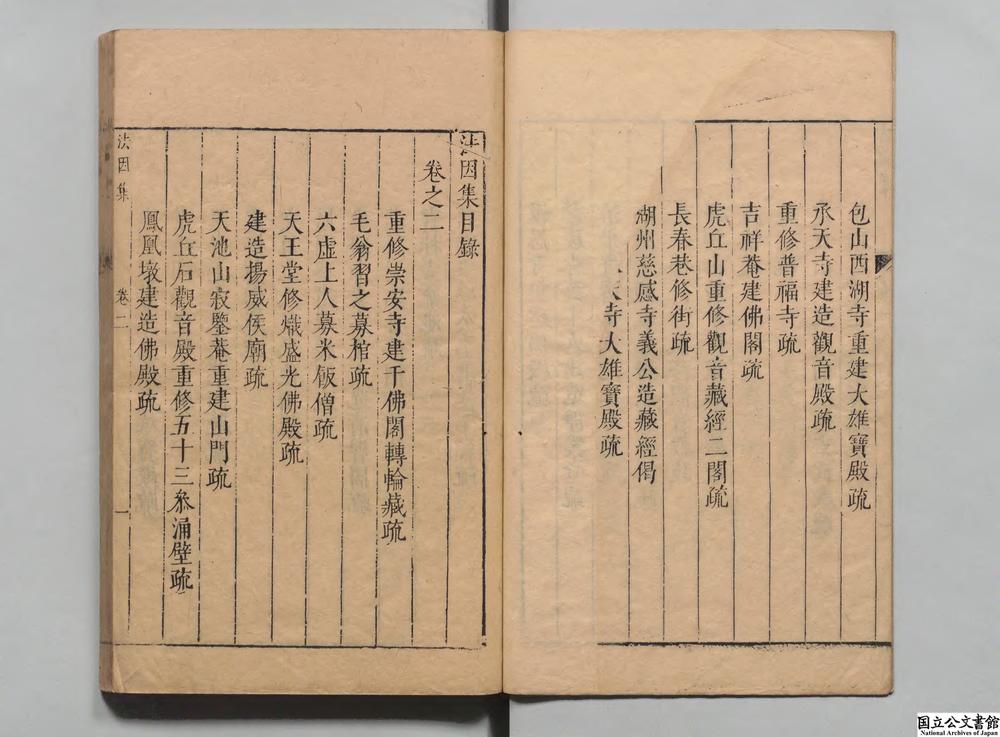 包山西湖寺重建大雄寶殿疏
承天寺建造觀音殿疏
重修普福寺疏
吉祥菴建佛閣疏
虎丘山重修觀音藏經二閣疏
長春巷修街疏
湖州慈感寺義公造藏經偈
天寺大雄寶殿疏
法因集目錄
卷之二
重修崇安寺建千佛閣轉輪藏疏
毛翁習之募棺疏
六虛上人募米飯僧疏
天王堂修熾盛光佛殿疏
建造揚威侯廟疏
天池山寂鑒菴重建山門疏
虎丘石觀音殿重修五十三叅涌壁疏
鳳凰墩建造佛殿疏
法因集
卷二
一
国立公文書館
National Archives of Japan